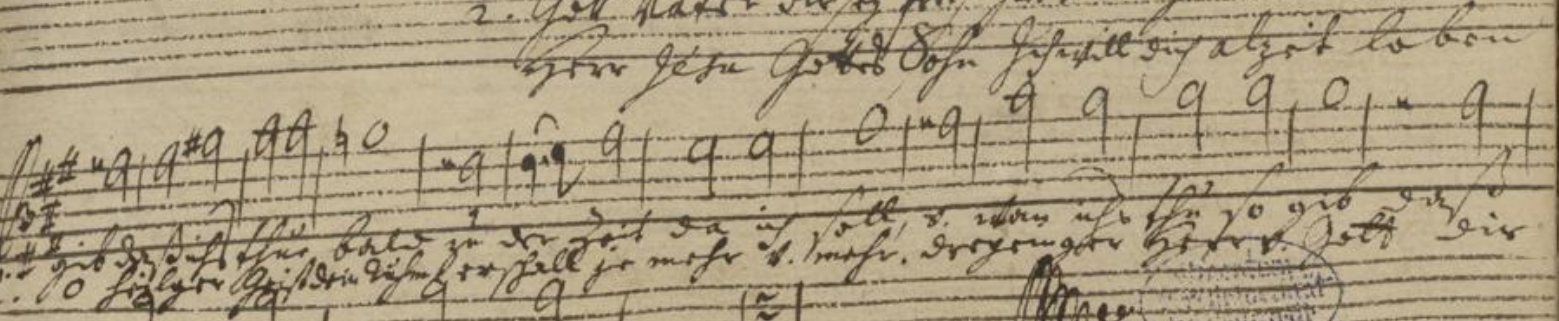 2. Gott Vater
Herr Jesu Gottes Sohn Ich will dich alzeit loben
gib daß ichs thue bald zu der Zeit da ich soll, v. wan ichs thu so gib daß
O heilger Geist dein Ruhm erschall je mehr v. mehr. dreyeiniger Herr v. Gott dir